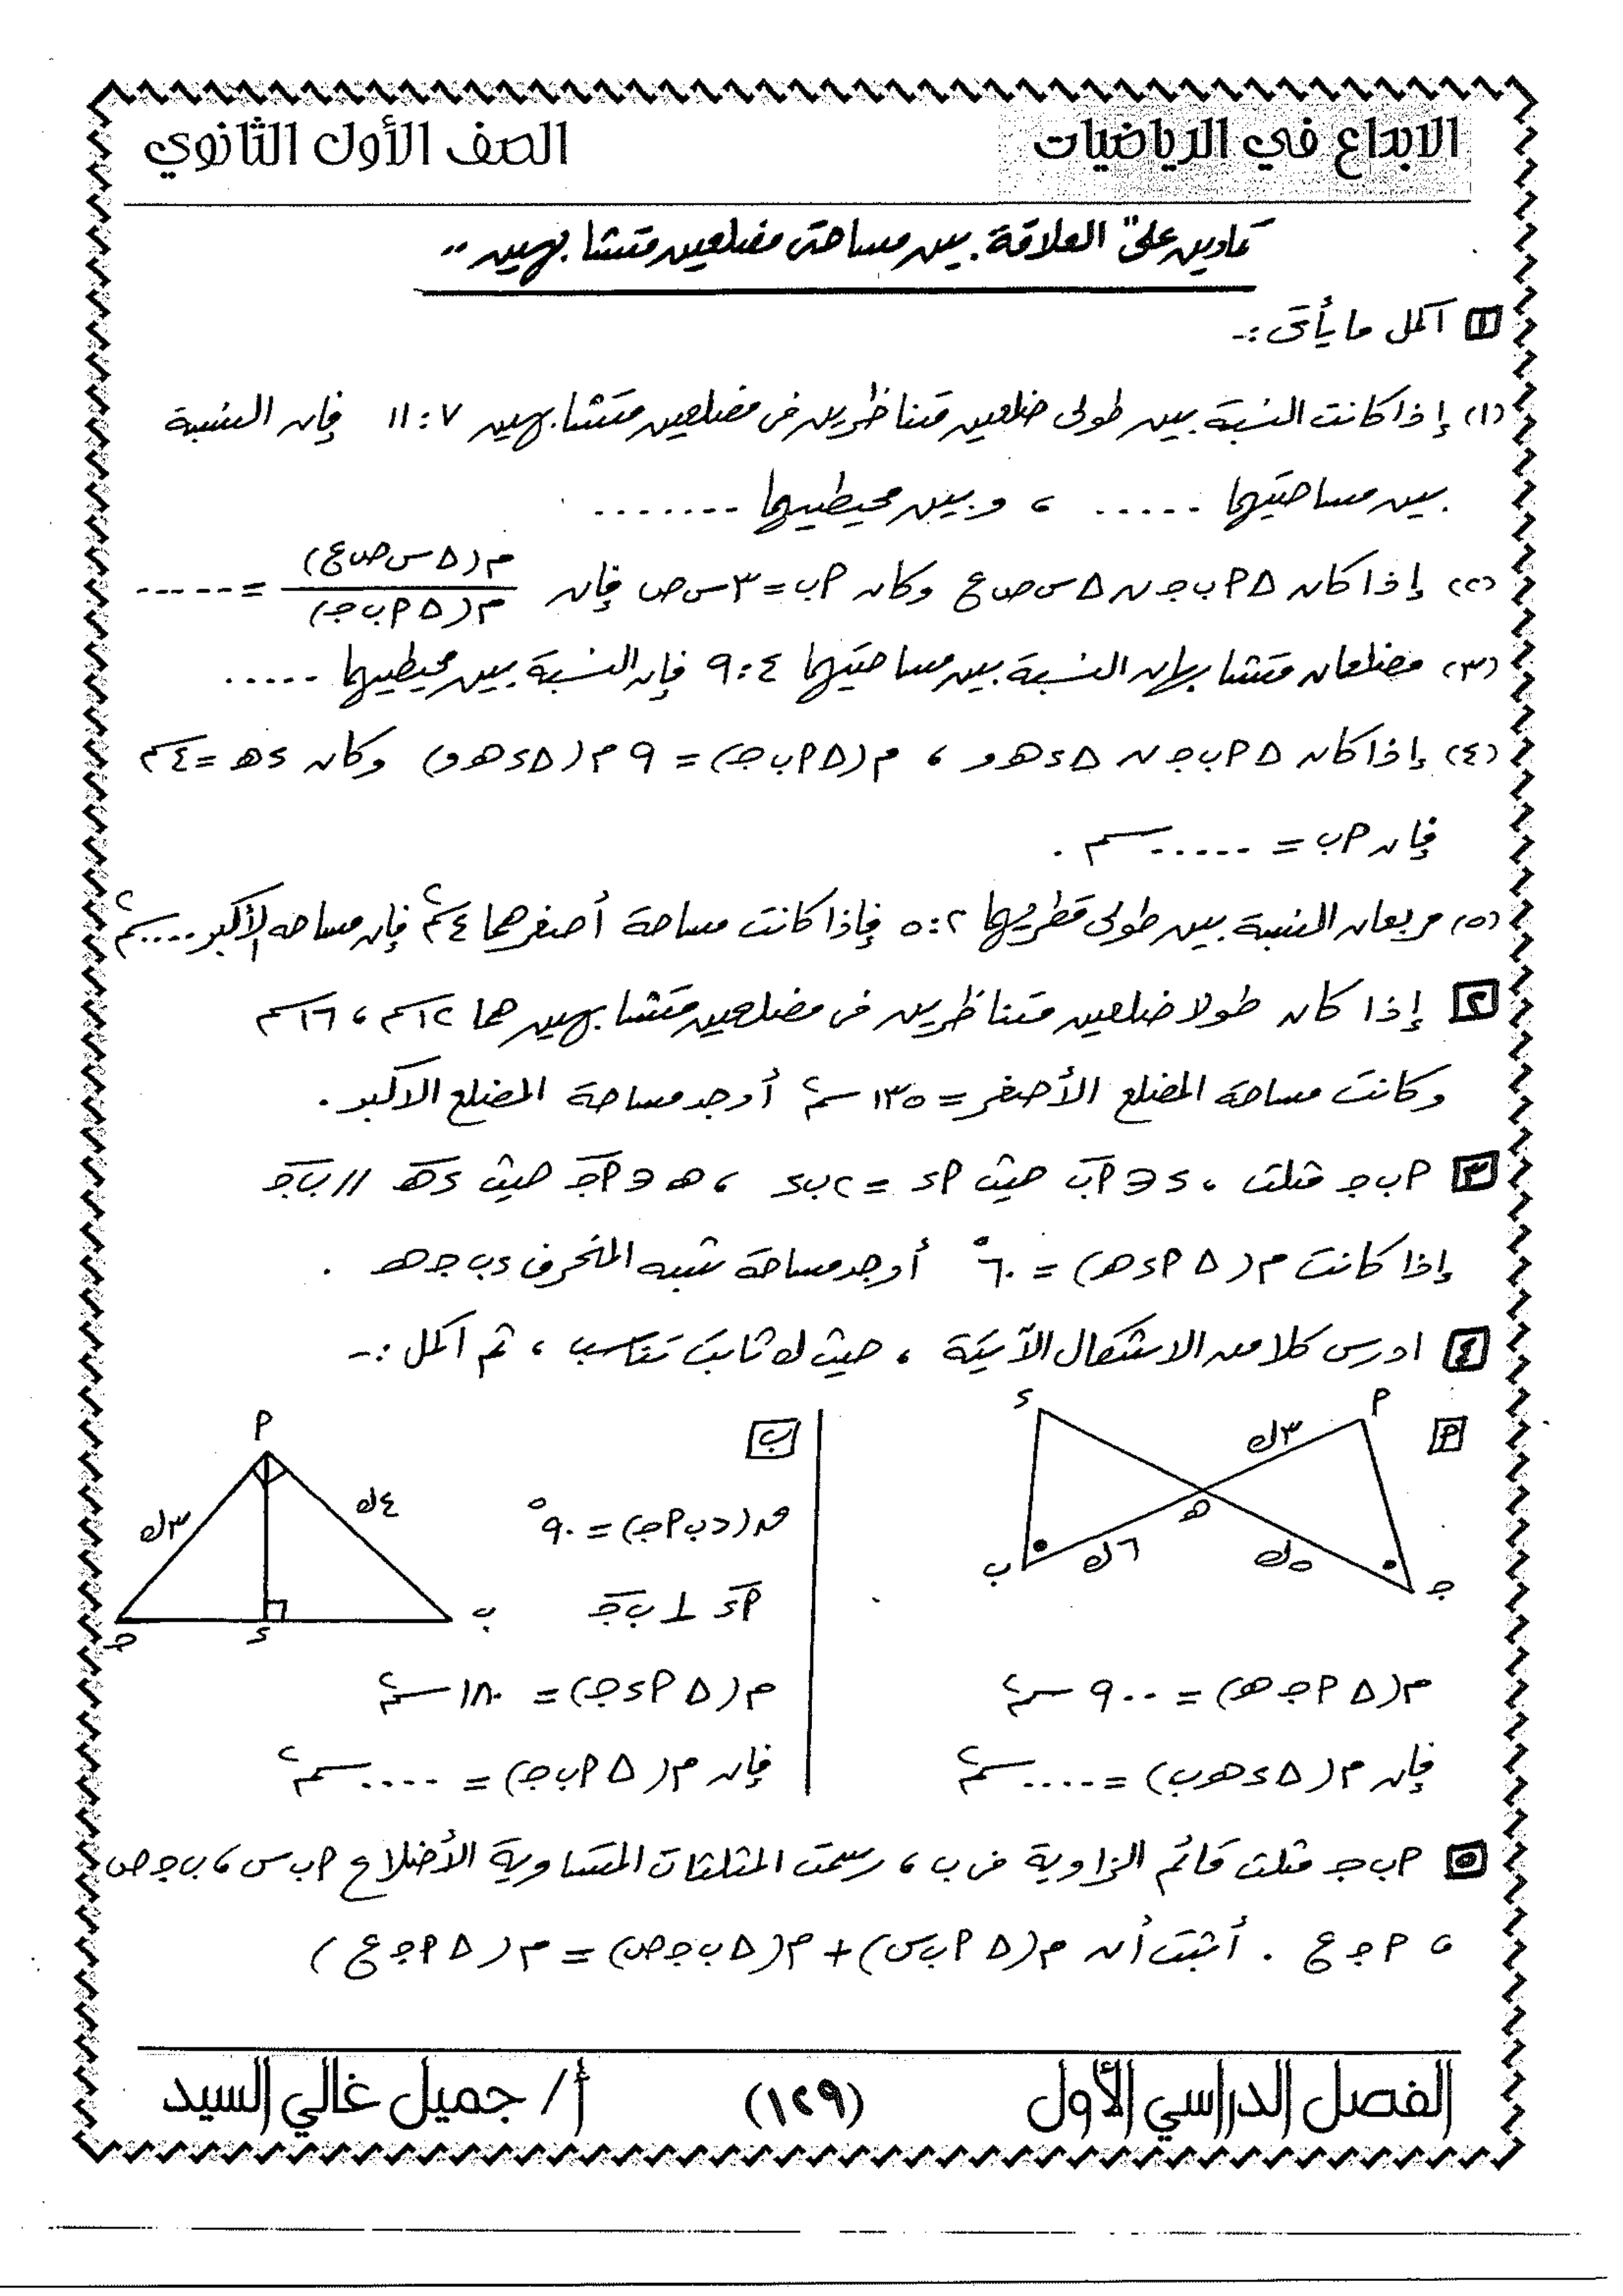 الابداع في الرياضيات
الصف الأول الثانوي
تمارين على "العلاقة بين مساحتى مضلعين متشابهين"
١ أكمل ما يأتى :-
(١) إذا كانت النسبة بين طولى ضلعين متناظرين فى مضلعين متشابهين ٧ : ١١ فإن النسبة
بين مساحتيهما ..... ، وبين محيطيهما .......
(٢) إذا كان △ أ ب جـ ~ △ س ص ع وكان أ ب = ٣ س ص فإن م(△ س ص ع) / م(△ أ ب جـ) = .....
(٣) مضلعان متشابهان النسبة بين مساحتيهما ٤ : ٩ فإن النسبة بين محيطيهما .....
(٤) إذا كان △ أ ب جـ ~ △ د هـ و ، م(△ أ ب جـ) = ٩ م(△ د هـ و) وكان د هـ = ٤ سم
فإن أ ب = ..... سم .
(٥) مربعان النسبة بين طولى قطريهما ٢ : ٥ فإذا كانت مساحة أصغرهما ٤ سم٢ فإن مساحه الأكبر .... سم٢
٢ إذا كان طولا ضلعين متناظرين فى مضلعين متشابهين هما ١٢ سم ، ١٦ سم
وكانت مساحة المضلع الأصغر = ١٣٥ سم٢ أوجد مساحة المضلع الاكبر .
٣ أ ب جـ مثلث ، د ∈ أ ب حيث أ د = ٢ ب د ، هـ ∈ أ جـ حيث د هـ // ب جـ
إذا كانت م(△ أ د هـ) = ٦٠° أوجد مساحة شبه المنحرف د ب جـ هـ .
٤ ادرس كلا من الاشكال الآتية ، حيث ك ثابت تناسب ، ثم اكمل :-
أ
د
أ
٣ك
هـ
٦ك
٥ك
ب
جـ
م(△ أ جـ هـ) = ٩٠٠ سم٢
فإن م(△ د هـ ب) = .... سم٢
ب
أ
٣ك
٤ك
جـ
د
ب
ق(∠ ب أ جـ) = ٩٠°
أ د ⊥ ب جـ
م(△ أ د جـ) = ١٨٠ سم٢
فإن م(△ أ ب جـ) = .... سم٢
٥ أ ب جـ مثلث قائم الزاوية فى ب ، رسمت المثلثات المتساوية الأضلاع أ ب س ، ب جـ ص
، أ جـ ع . أثبت أن م(△ أ ب س) + م(△ ب جـ ص) = م(△ أ جـ ع)
الفصل الدراسي الأول
(١٢٩)
أ / جميل غالي السيد